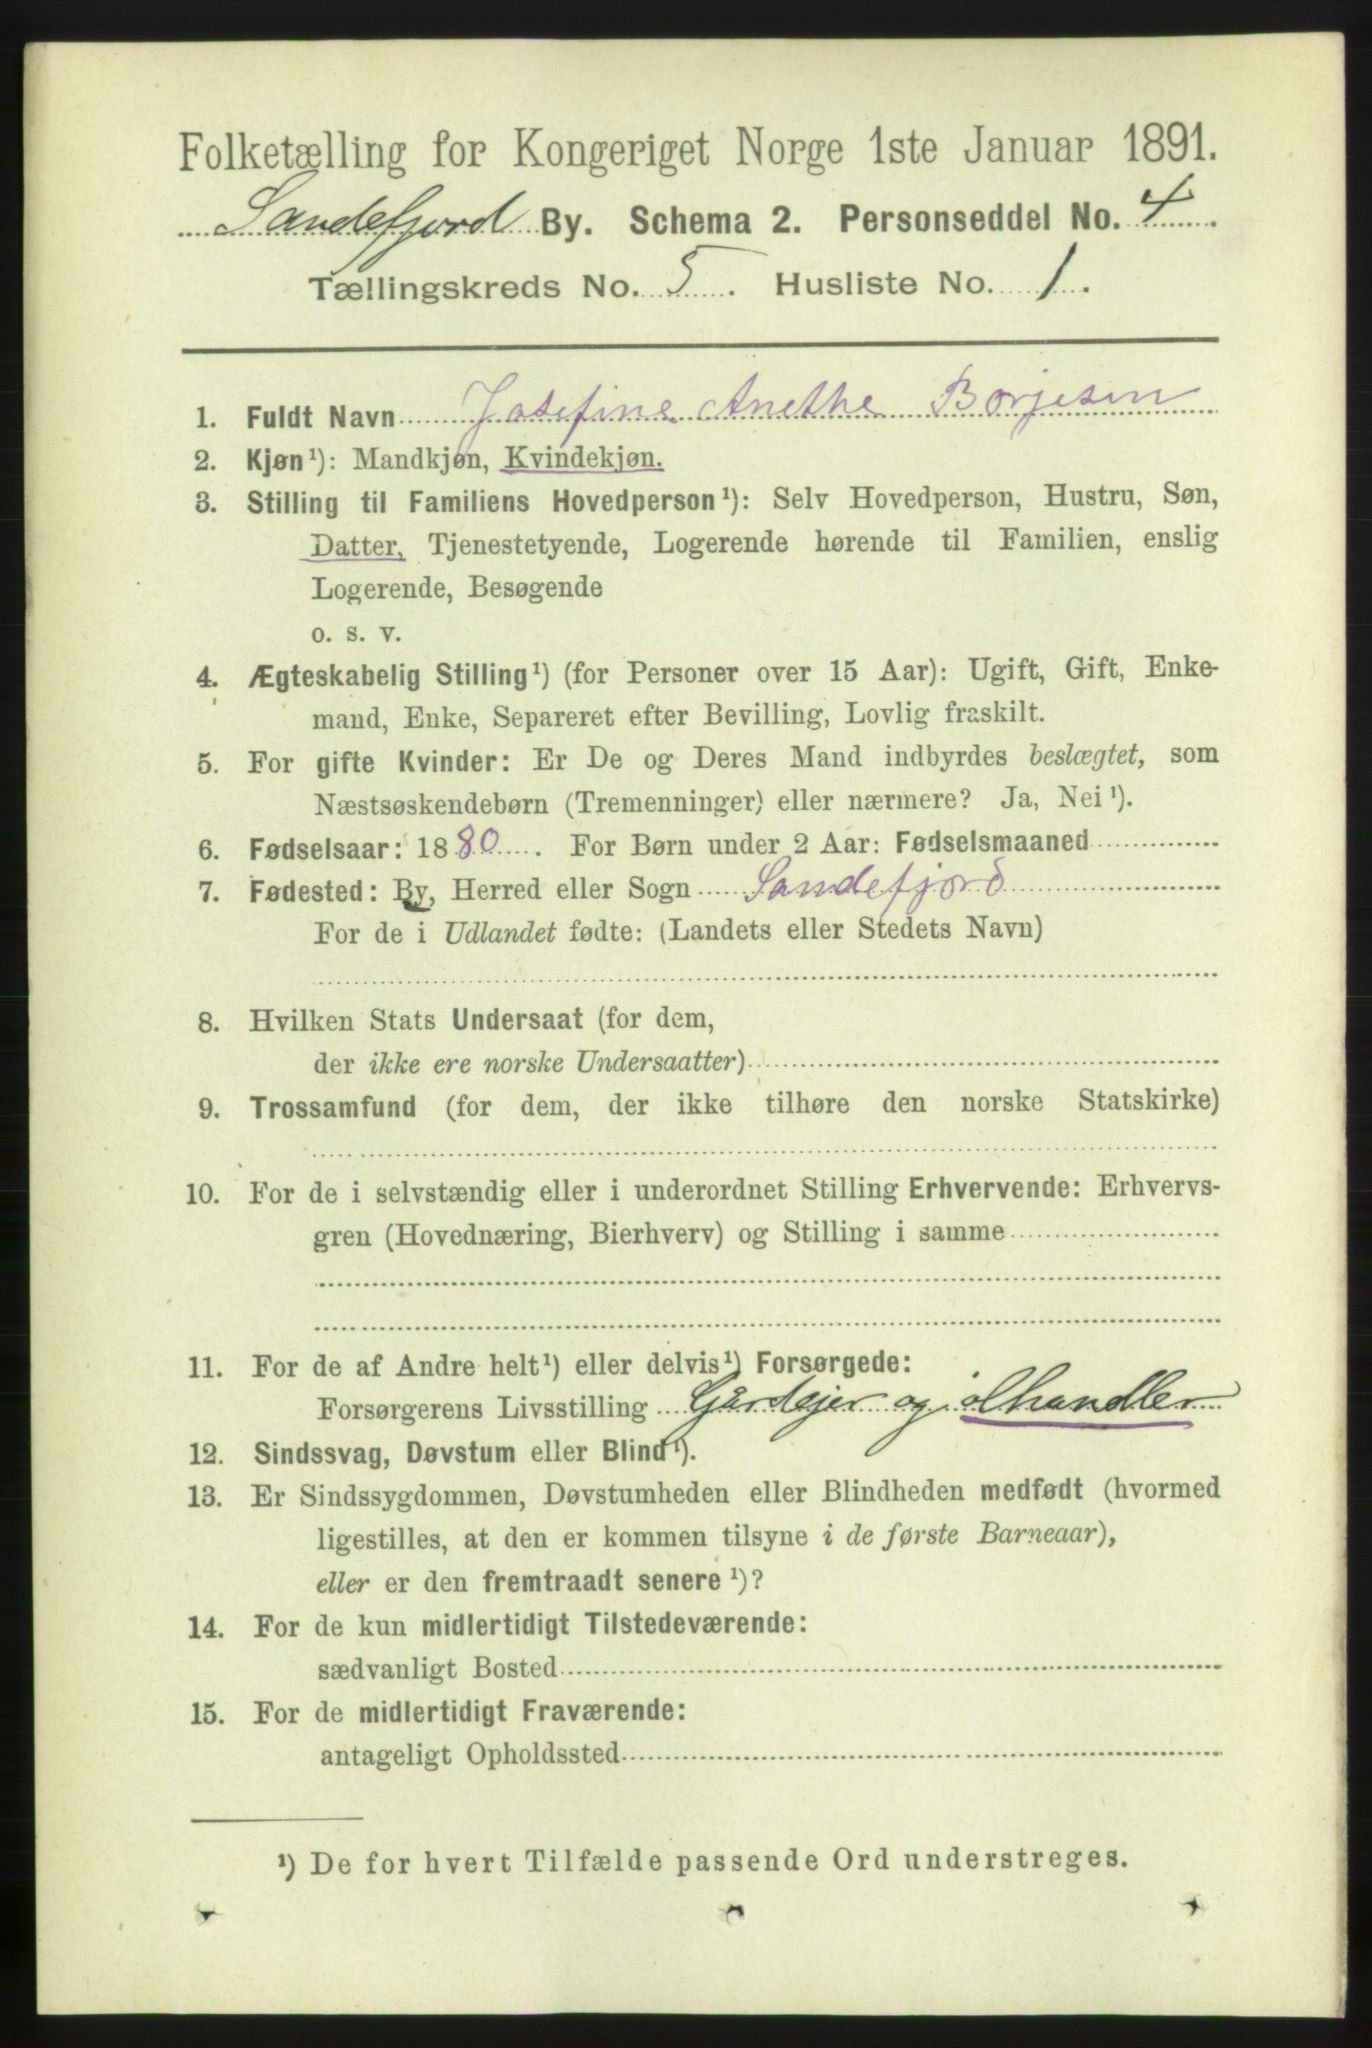 Folketælling for Kongeriget Norge 1ste Januar 1891.
Sandefjord By. Schema 2. Personseddel No. 4.
Tællingskreds No. 5. Husliste No. 1.
1. Fuldt Navn Josefine Anethe Borjesen
2. Kjøn¹): Mandkjøn, Kvindekjøn.
3. Stilling til Familiens Hovedperson¹): Selv Hovedperson, Hustru, Søn,
Datter, Tjenestetyende, Logerende hørende til Familien, enslig
Logerende, Besøgende
o. s. v.
4. Ægteskabelig Stilling¹) (for Personer over 15 Aar): Ugift, Gift, Enke-
mand, Enke, Separeret efter Bevilling, Lovlig fraskilt.
5. For gifte Kvinder: Er De og Deres Mand indbyrdes beslægtet, som
Næstsøskendebørn (Tremenninger) eller nærmere? Ja, Nei¹).
6. Fødselsaar: 1880. For Børn under 2 Aar: Fødselsmaaned
7. Fødested: By, Herred eller Sogn Sandefjord
For de i Udlandet fødte: (Landets eller Stedets Navn)
8. Hvilken Stats Undersaat (for dem,
der ikke ere norske Undersaatter)
9. Trossamfund (for dem, der ikke tilhøre den norske Statskirke)
10. For de i selvstændig eller i underordnet Stilling Erhvervende: Erhvervs-
gren (Hovednæring, Bierhverv) og Stilling i samme
11. For de af Andre helt¹) eller delvis¹) Forsørgede:
Forsørgerens Livsstilling Gårdejer og ølhandler
12. Sindssvag, Døvstum eller Blind¹).
13. Er Sindssygdommen, Døvstumheden eller Blindheden medfødt (hvormed
ligestilles, at den er kommen tilsyne i de første Barneaar),
eller er den fremtraadt senere¹)?
14. For de kun midlertidigt Tilstedeværende:
sædvanligt Bosted
15. For de midlertidigt Fraværende:
antageligt Opholdssted
¹) De for hvert Tilfælde passende Ord understreges.